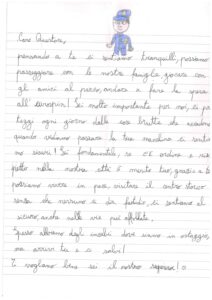 Caro Questore,
pensando a te ci sentiamo tranquilli, possiamo
passeggiare con le nostre famiglie, giocare con
gli amici al parco, andare a fare la spesa
all'eurospin! Sei molto importante per noi, ci pro
teggi ogni giorno dalle cose brutte che accadono
quando vediamo passare la tua macchina ci sentia
mo sicuri! Sei fondamentale, se c'è ordine e ris
petto nella nostra città è merito tuo, grazie a te
possiamo vivere in pace, visitare il centro storico
senza che nessuno ci dia fastidio, ci sentiamo al
sicuro, anche nelle vie più affollate.
Spesso abbiamo degli incubi dove siamo in ostaggio,
ma arrivi tu e ci salvi!
Ti vogliamo bene sei il nostro supereroe!